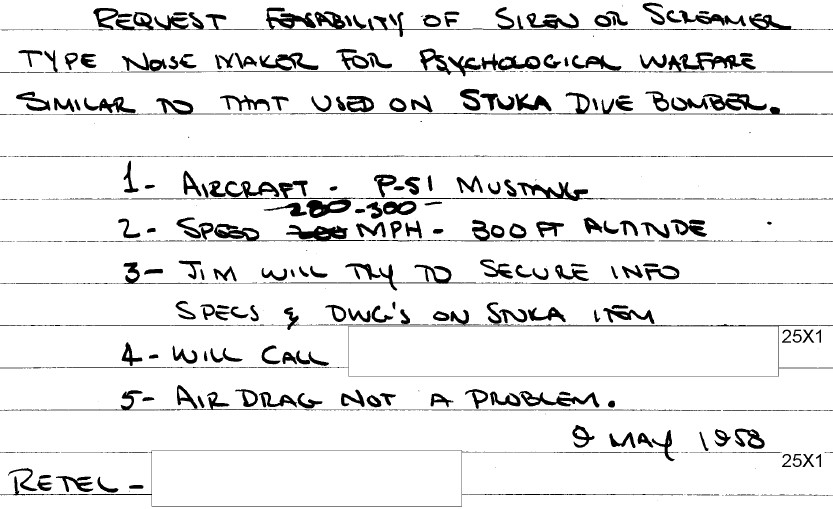 REQUEST FEASABILITY OF SIREN OR SCREAMER
TYPE NOISE MAKER FOR PSYCHOLOGICAL WARFARE
SIMILAR TO THAT USED ON STUKA DIVE BOMBER.
1- AIRCRAFT - P-51 MUSTANG
280-300
2- SPEED MPH - 300 FT ALTITUDE
3- JIM WILL TRY TO SECURE INFO
SPECS & DWG'S ON STUKA ITEM
25X1
4- WILL CALL
5- AIR DRAG NOT A PROBLEM.
9 MAY 1958
25X1
RETEL-